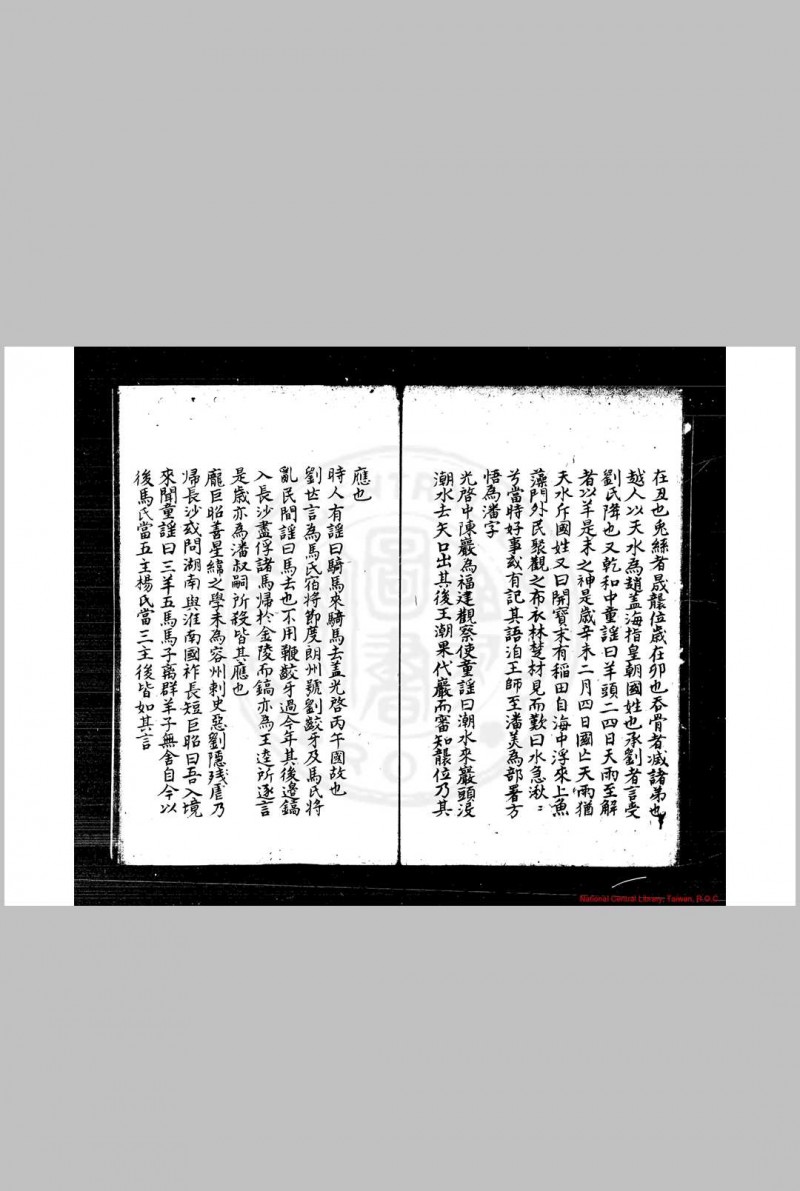 在丑也兎絲者晟襲位歳在卯也吞骨者滅諸弟也
越人以天水為趙蓋海指皇朝國姓也承劉者言受
劉氏降也又乾和中童謡曰羊頭二四日天雨至解
者以羊是未之神是歳辛未二月四日國亡天雨猶
天水斥國姓又曰開寶末有稻田自海中浮來上魚
藻門外民聚觀之布衣林楚材見而歎曰水急湫〻
兮當時好事或有記其語洎王師至潘美為部署方
悟為潘字
光啓中陳巖為福建觀察使童謡曰潮水來巖頭沒
潮水去矢口出其後王潮果代巖而審知襲位乃其
應也
時人有謡曰騎馬來騎馬去蓋光啓丙午國故也
劉𠀍言為馬氏宿将節度朗州號劉齩牙及馬氏将
亂民間謡曰馬去也不用鞭齩牙過今年其後邉鎬
入長沙盡俘諸馬帰於金陵而鎬亦為王逵所逐言
是歳亦為潘叔嗣所殺皆其應也
龐巨昭善星緯之學未為容州刺史惡劉隱殘虐乃
帰長沙或問湖南與淮南國祚長短巨昭曰吾入境
來聞童謡曰三羊五馬馬子离群羊子無舍自今以
後馬氏當五主楊氏當三主後皆如其言
National Central Library, Taiwan, R.O.C.